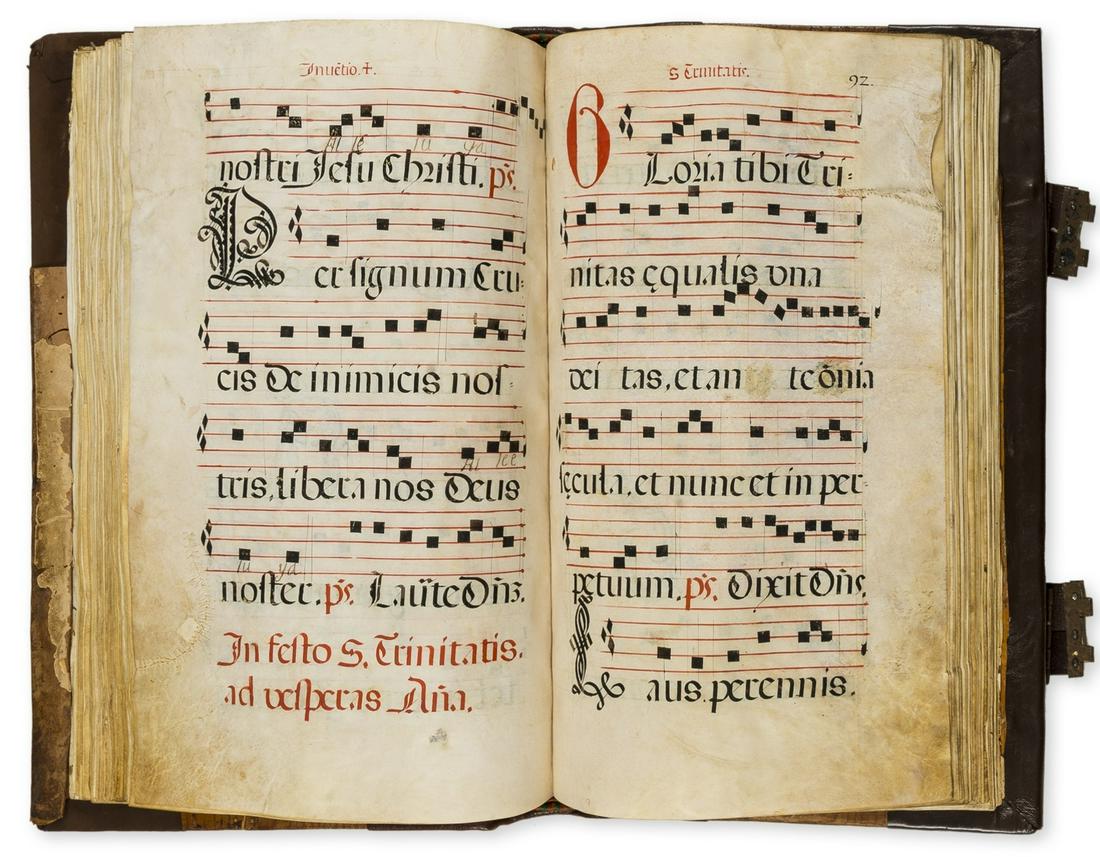 Inuētio.✝.
Al le lu ya
nostri Jesu Christi. ps.
Per signum Cru-
cis De inimicis nos-
Al lee
tris, libera nos Deus
lu ya
noster. ps. Laūte Dn̄ʒ.
In festo S. Trinitatis.
ad vesperas An̄a.
S Trinitatis.
92.
GLoria tibi Tri-
nitas ęqualis vna
Dei tas, et an te ōnia
sęcula, et nunc et in per-
petuum. ps. Dixit Dn̄s.
Laus perennis.